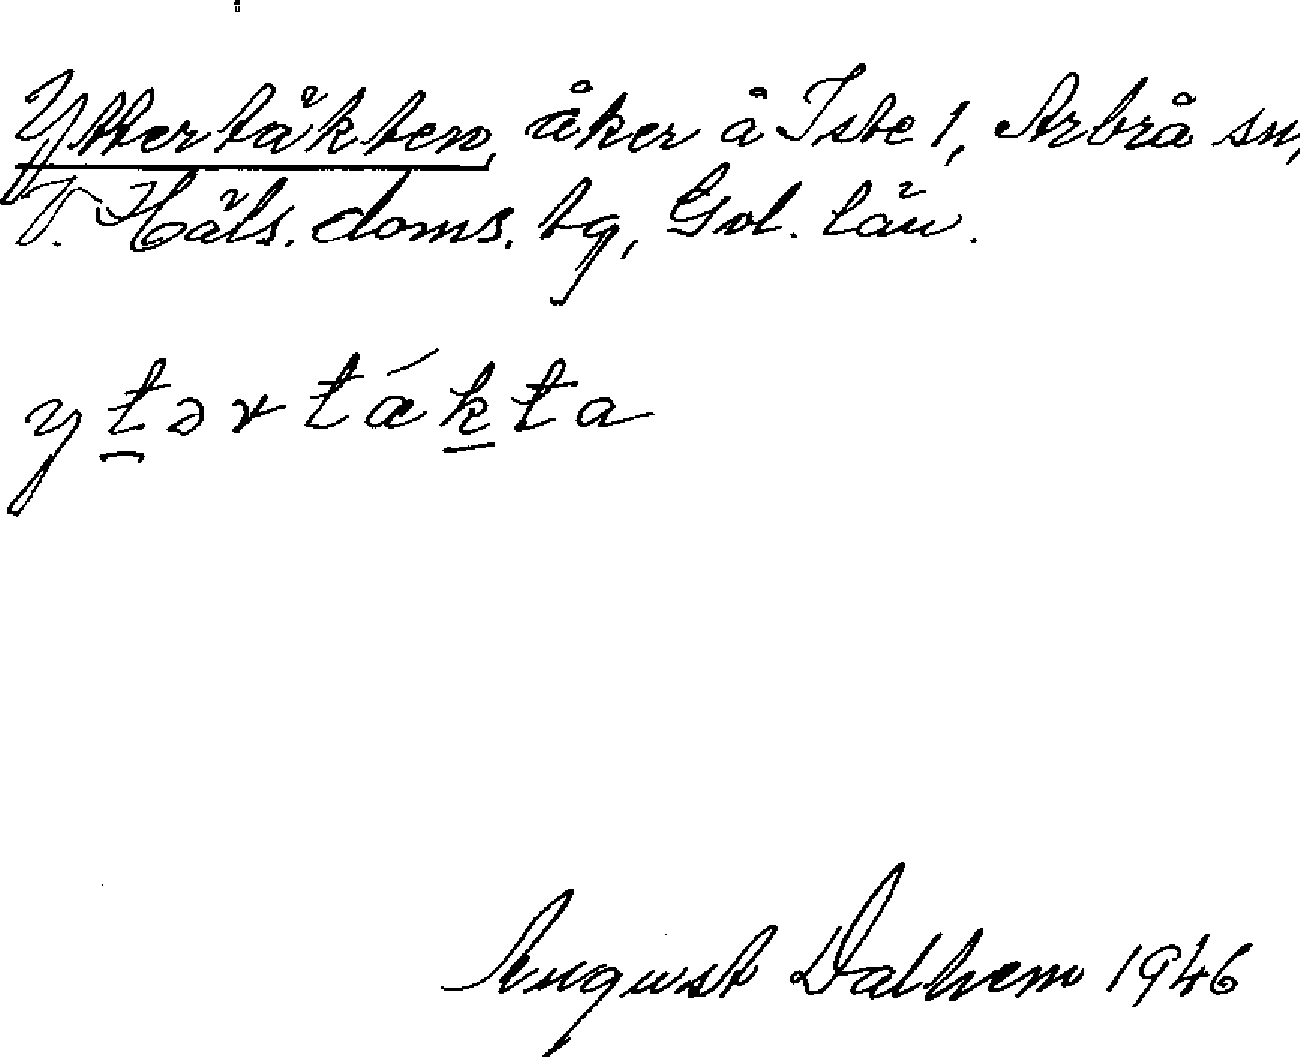 Yttertäkten, åker å Iste 1, Arbrå sn,
V. Häls. doms. tg, Gvl. län.
yt̲ərtǽk̲ta
August Dalhem 1946